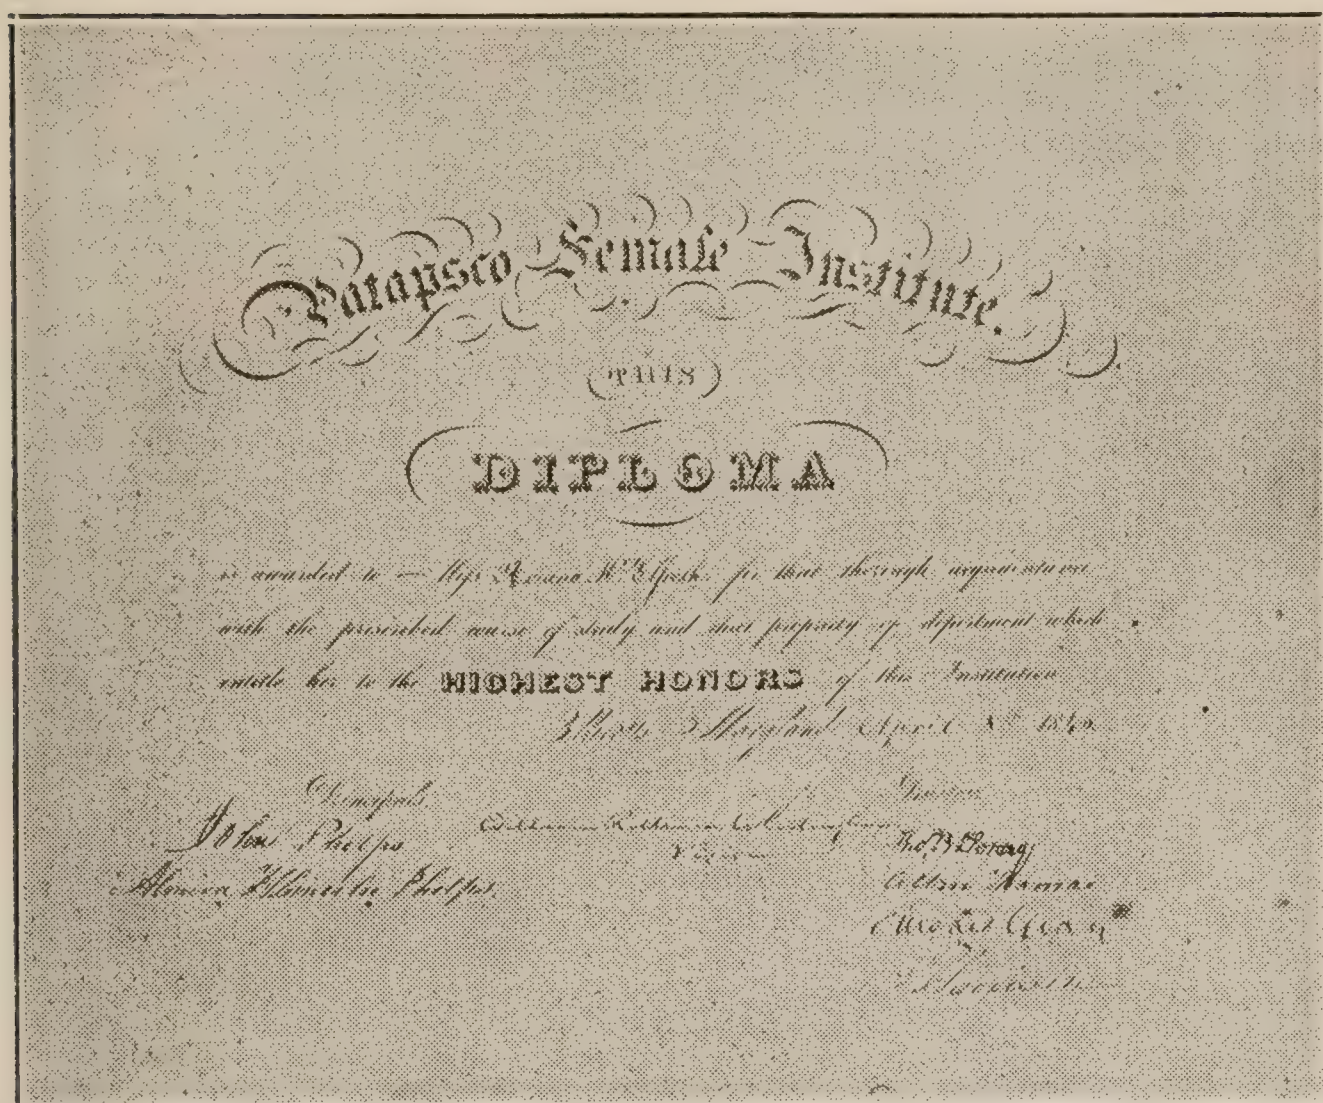 Patapsco Female Institute.
THIS
DIPLOMA
is awarded to — Miss for that thorough acquaintance
with the prescribed course of study and that propriety of deportment which
entitle her to the HIGHEST HONORS of this Institution
Maryland April
Principals
John Phelps
Almira H Lincoln Phelps.
William
Trustees
Tho. B Dorsey
Allen Thomas